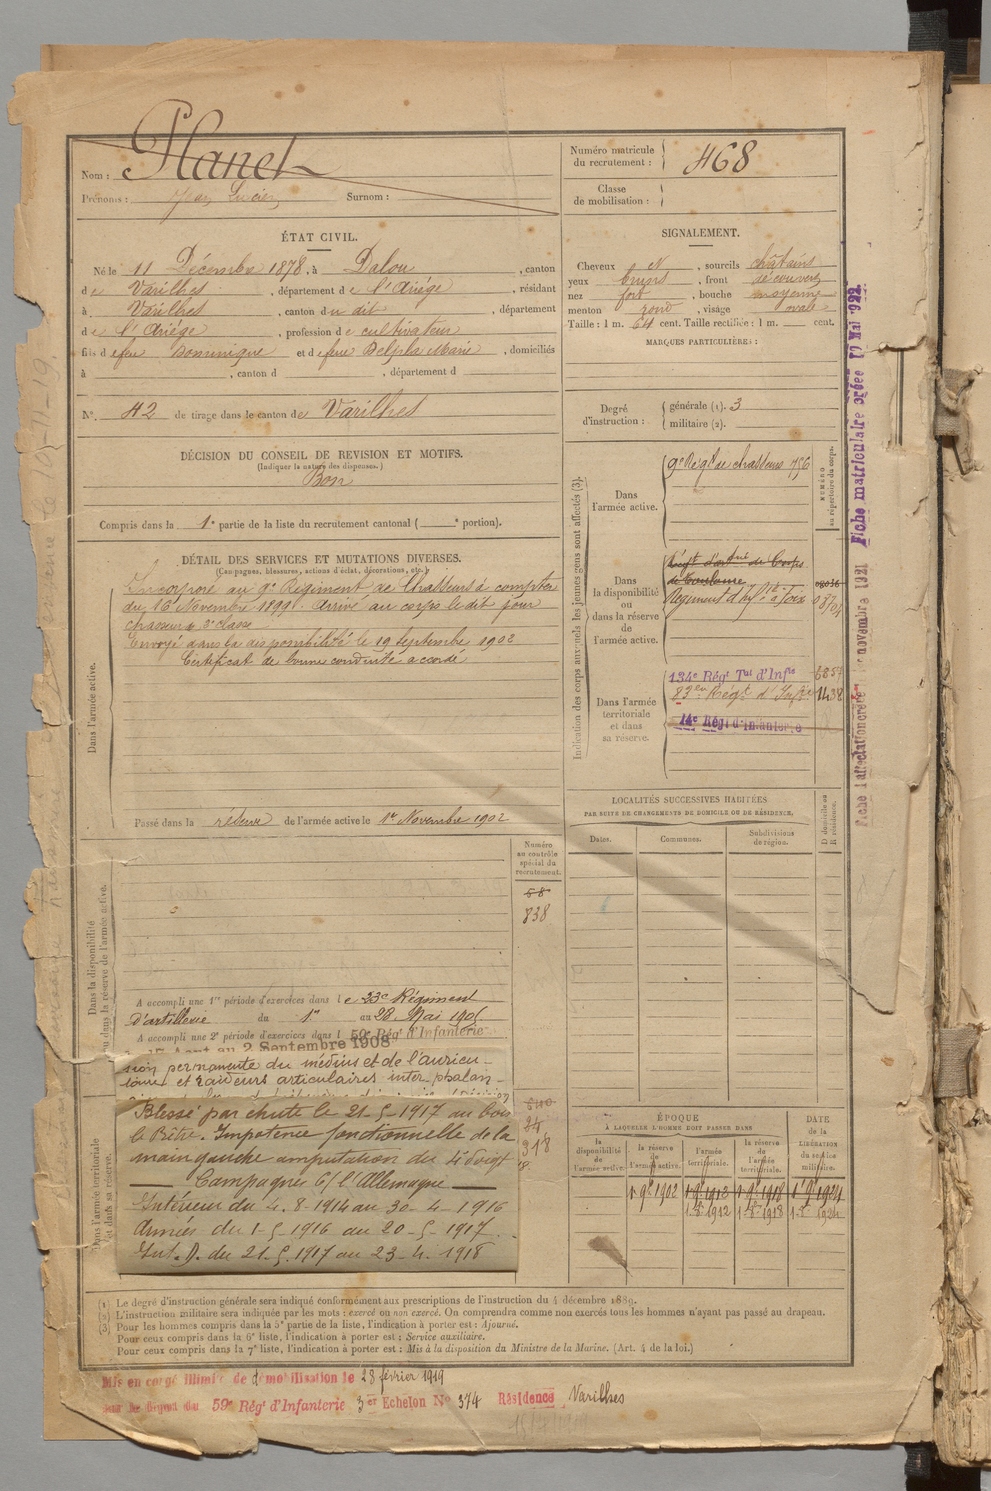 Nom : Planet
Prénoms : Jean Lucien Surnom :
Numéro matricule du recrutement : 468
Classe de mobilisation :
ÉTAT CIVIL.
Né le 11 Décembre 1878, à Dalou, canton
de Varilhes, département de l'Ariège, résidant
à Varilhes, canton du dit, département
de l'Ariége, profession de cultivateur
fils de feu Dominique et de feue Delpla Marie, domiciliés
à , canton d , département d
N°. 42 de tirage dans le canton de Varilhes
DÉCISION DU CONSEIL DE REVISION ET MOTIFS.
(Indiquer la nature des dispenses.)
Bon
Compris dans la 1e partie de la liste du recrutement cantonal ( e portion).
SIGNALEMENT.
Cheveux N, sourcils châtains
yeux bruns, front découvert
nez fort, bouche moyenne
menton rond, visage ovale
Taille : 1 m. 64 cent. Taille rectifiée : 1 m. cent.
MARQUES PARTICULIÈRES :
Degré d'instruction : générale (1). 3
militaire (2).
DÉTAIL DES SERVICES ET MUTATIONS DIVERSES.
(Campagnes, blessures, actions d'éclat, décorations, etc.)
Dans l'armée active.
Incorporé au 9e Régiment de Chasseurs à compter
du 16 Novembre 1899. Arrivé au corps le dit jour
chasseur de 2e classe
Envoyé dans la disponibilité le 19 septembre 1902
Certificat de bonne conduite accordé
Passé dans la réserve de l'armée active le 1er Novembre 1902
Indication des corps auxquels les jeunes gens sont affectés (3).
NUMÉRO au répertoire du corps.
Dans l'armée active.
9e Régt de chasseurs 756
Dans la disponibilité ou dans la réserve de l'armée active.
Régt d'artie de Corps
de Toulouse
Régiment d'Inf ie à Foix
Dans l'armée territoriale et dans sa réserve.
134e Régt Tal d'Infie
83e Régt d'Infie 1438
14e Régt d'Infanterie
LOCALITÉS SUCCESSIVES HABITÉES
PAR SUITE DE CHANGEMENTS DE DOMICILE OU DE RÉSIDENCE.
Dates. Communes. Subdivisions de région. D domicile ou R résidence.
Dans la disponibilité ou dans la réserve de l'armée active.
Numéro au contrôle spécial du recrutement.
68
838
A accompli une 1re période d'exercices dans le 23e Régiment
d'artillerie du 1er au 28 Mai 1905
A accompli une 2e période d'exercices dans l 59e Régt d'Infanterie
17 Aout au 2 Septembre 1908
sion permanente du médius et de l'auricu-
laire et raideurs articulaires inter-phalan-
Dans l'armée territoriale et dans sa réserve.
Blessé par chute le 21-5-1917 au bois
le Prêtre. Impotence fonctionnelle de la
main gauche amputation du 4e doigt
Campagnes c/ l'Allemagne
Intérieur du 4.8-1914 au 30-4-1916
Armées du 1-5-1916 au 20-5-1917.
Int. D. du 21-5-1917 au 23-4-1918
24
318
ÉPOQUE
À LAQUELLE L'HOMME DOIT PASSER DANS
la disponibilité de l'armée active. la réserve de l'armée active. l'armée territoriale. la réserve de l'armée territoriale.
DATE de la LIBÉRATION du service militaire.
1er 9bre 1902 1er 9bre 1912 1er 9bre 1918 1er 9bre 1924
1-8-1912 1-8-1918 1-8-1924
(1) Le degré d'instruction générale sera indiqué conformément aux prescriptions de l'instruction du 4 décembre 1889.
(2) L'instruction militaire sera indiquée par les mots : exercé ou non exercé. On comprendra comme non exercés tous les hommes n'ayant pas passé au drapeau.
(3) Pour les hommes compris dans la 5e partie de la liste, l'indication à porter est : Ajourné.
Pour ceux compris dans la 6e liste, l'indication à porter est : Service auxiliaire.
Pour ceux compris dans la 7e liste, l'indication à porter est : Mis à la disposition du Ministre de la Marine. (Art. 4 de la loi.)
Mis en congé illimité de démobilisation le 28 février 1919
59e Régt d'Infanterie 3er Echelon No 374 Résidence Varilhes
Fiche matriculaire créée 17 Mai 1922
Fiche d'affectation créée 1er novembre 1921